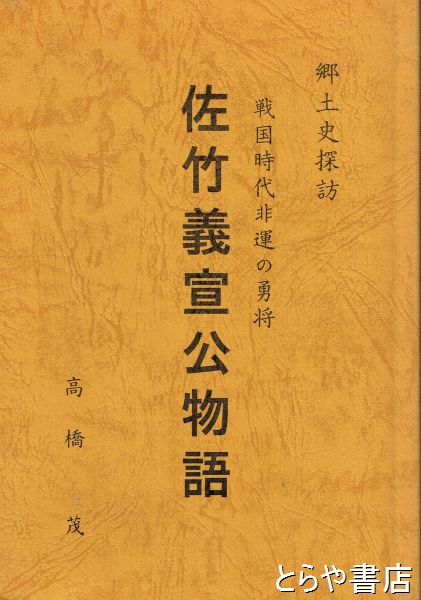 郷土史探訪
戦国時代非運の勇将
佐竹義宣公物語
高橋 茂
とらや書店